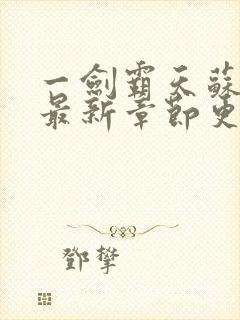 一劍霸天蘇
最新章節更
鄧攀